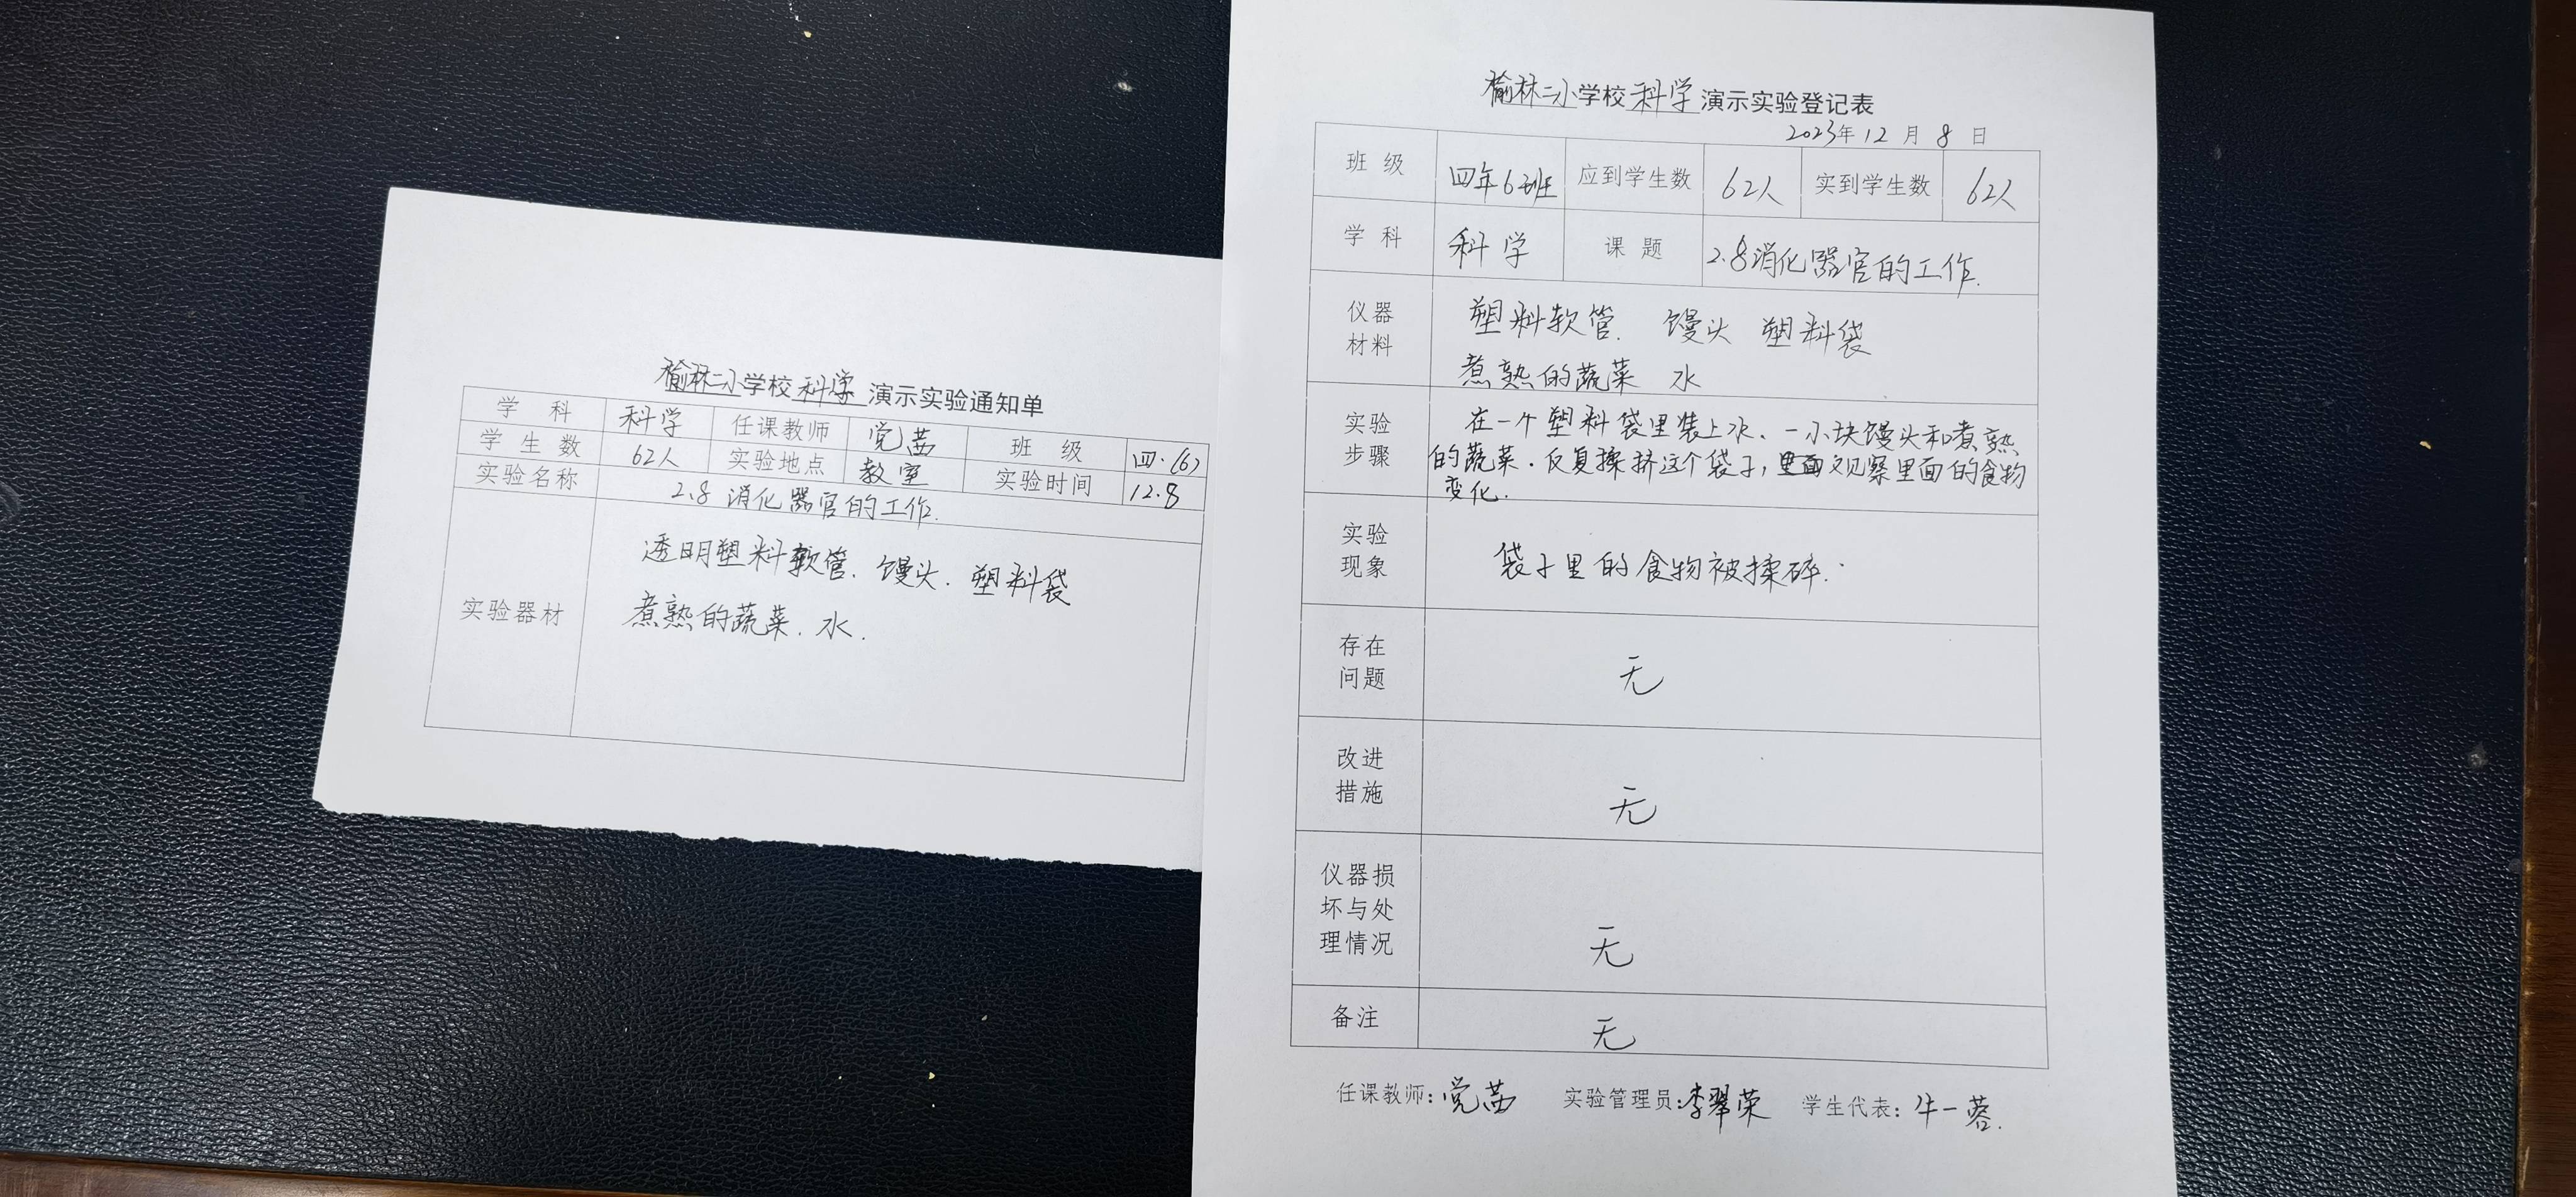 榆林二小学校科学演示实验通知单
学 科 科学 任课教师 党茜 班 级 四.(6)
学 生 数 62人 实验地点 教室 实验时间 12.8
实验名称 2.8 消化器官的工作.
实验器材
透明塑料软管. 馒头. 塑料袋
煮熟的蔬菜. 水.
榆林二小学校科学演示实验登记表
2023年12月8日
班 级 四年6班 应到学生数 62人 实到学生数 62人
学 科 科学 课 题 2.8消化器官的工作.
仪器
材料
塑料软管. 馒头 塑料袋
煮熟的蔬菜 水
实验
步骤
在一个塑料袋里装上水、一小块馒头和煮熟
的蔬菜.反复揉挤这个袋子,观察里面的食物
变化.
实验
现象
袋子里的食物被揉碎.
存在
问题
无
改进
措施
无
仪器损
坏与处
理情况
无
备注 无
任课教师:党茜 实验管理员:李翠荣 学生代表:牛一蓉.